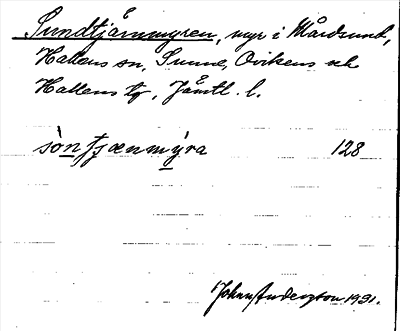 Sundtjärnmyren, myr i Mårdsund,
Hallens sn, Sunne, Ovikens och
Hallens tg, Jämtl. l.
sònt̀jænmỳra 128
John Anderzton 1931.